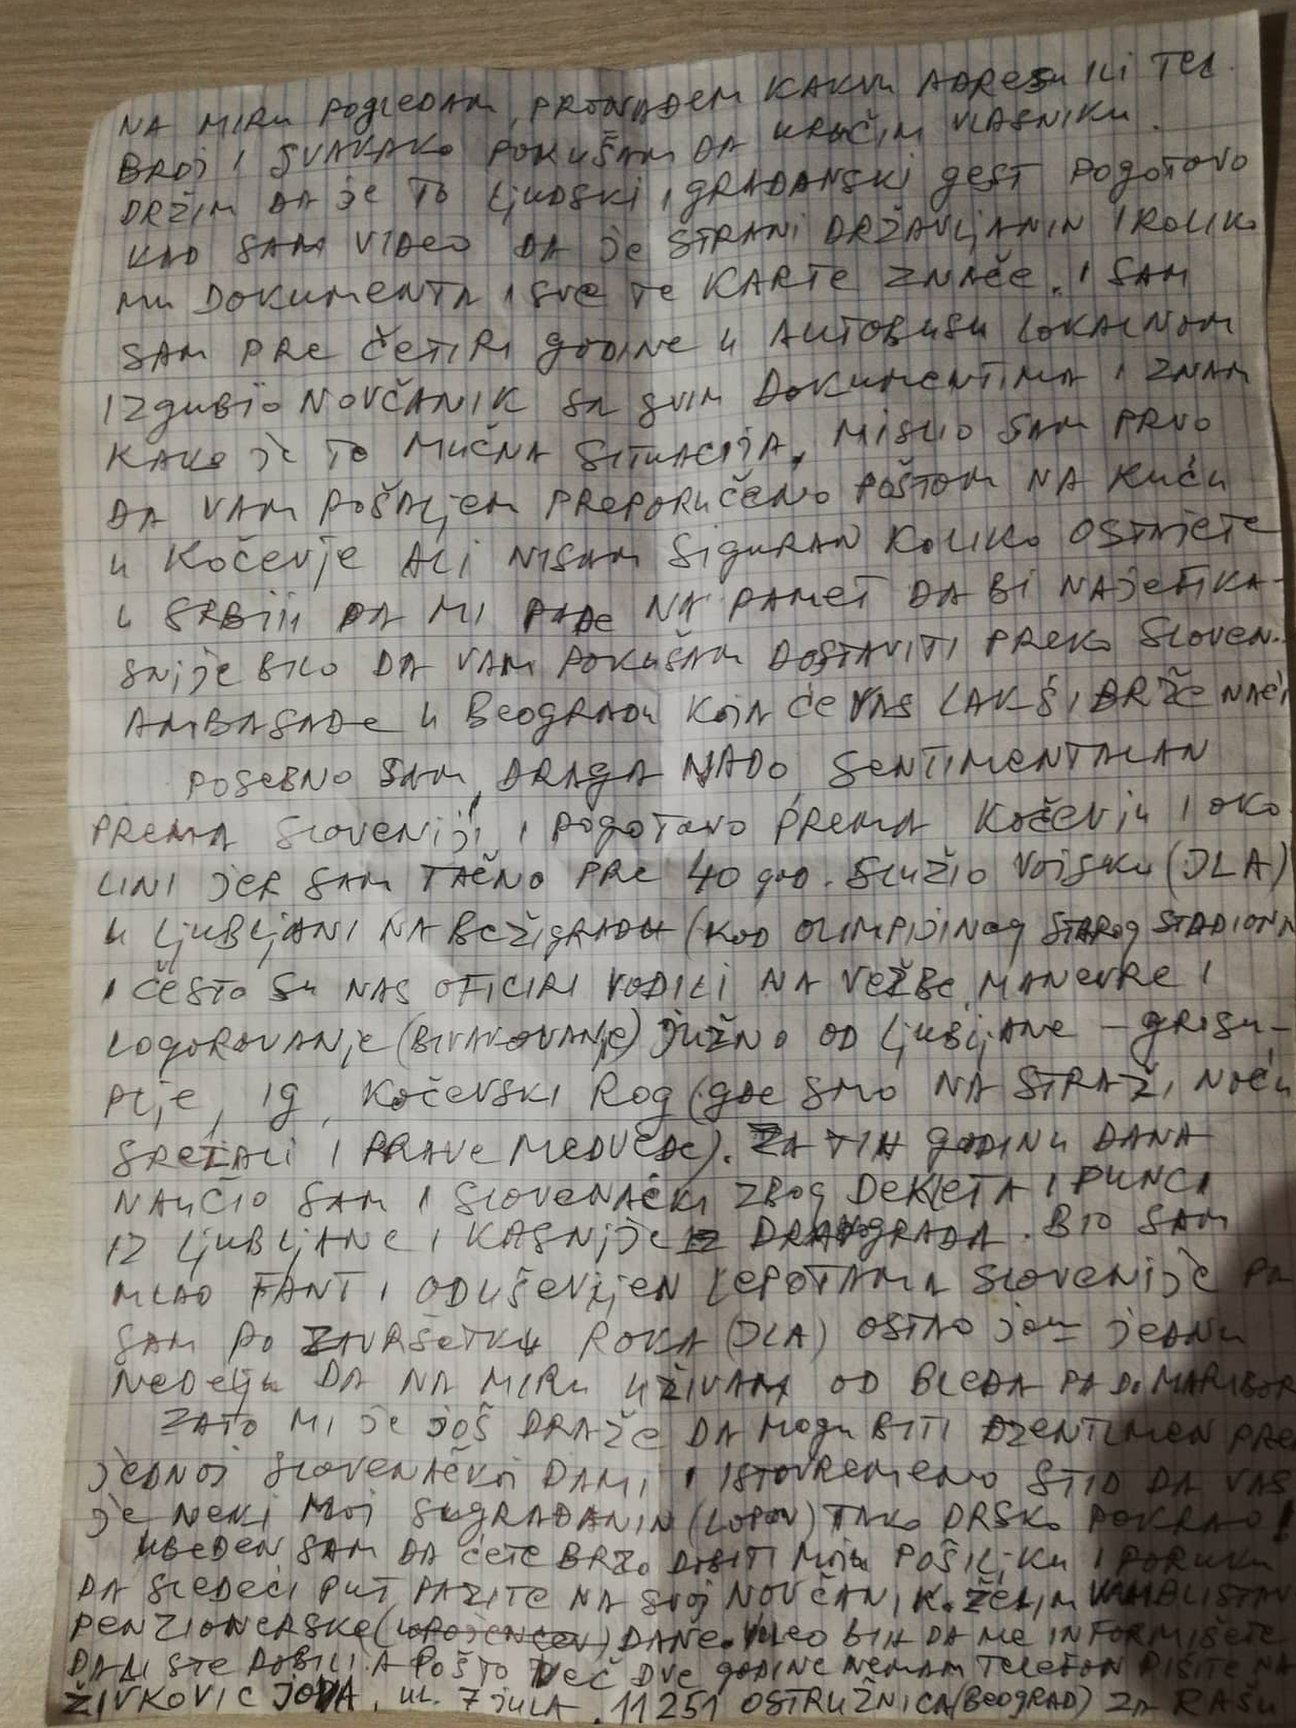 NA MIRU POGLEDAM, PRONAĐEM KAKVU ADRESU ILI TEL.
BROJ I SVAKAKO POKUŠAM DA URUČIM VLASNIKU.
DRŽIM DA JE TO LJUDSKI I GRAĐANSKI GEST POGOTOVO
KAD SAM VIDEO DA JE STRANI DRŽAVLJANIN I KOLIKO
MU DOKUMENTA I SVE TE KARTE ZNAČE. I SAM
SAM PRE ČETIRI GODINE U AUTOBUSU LOKALNOM
IZGUBIO NOVČANIK SA SVIM DOKUMENTIMA I ZNAM
KAKO JE TO MUČNA SITUACIJA. MISLIO SAM PRVO
DA VAM POŠALJEM PREPORUČENO POŠTOM NA KUĆU
U KOČEVJE ALI NISAM SIGURAN KOLIKO OSTAJETE
U SRBIJI DA MI PADE NA PAMET DA BI NAJEFIKA-
SNIJE BILO DA VAM POKUŠAM DOSTAVITI PREKO SLOVEN.
AMBASADE U BEOGRADU KOJA ĆE VAS LAKŠ I BRŽE NAĆI
POSEBNO SAM, DRAGA NADO, SENTIMENTALAN
PREMA SLOVENIJI I POGOTOVO PREMA KOČEVJU I OKO
LINI JER SAM TAČNO PRE 40 GOD. SLUŽIO VOJSKU (JLA)
U LJUBLJANI NA BEŽIGRADU (KOD OLIMPIJINOG STAROG STADIONA
I ČESTO SU NAS OFICIRI VODILI NA VEŽBE, MANEVRE I
LOGOROVANJE (BIVAKOVANJE) JUŽNO OD LJUBLJANE – GROSU-
PLJE, IG, KOČEVSKI ROG (GDE SMO NA STRAŽI NOĆU
SRETALI I PRAVE MEDVEDE). ZA TIH GODINU DANA
NAUČIO SAM I SLOVENAČKI ZBOG DEKLETA I PUNCI
IZ LJUBLJANE I KASNIJE IZ DRAVOGRADA. BIO SAM
MLAD FANT I ODUŠEVLJEN LEPOTAMA SLOVENIJE PA
SAM PO ZAVRŠETKU ROKA (JLA) OSTAO JOŠ JEDNU
NEDELJU DA NA MIRU UŽIVAM OD BLEDA PA DO MARIBOR
ZATO MI JE JOŠ DRAŽE DA MOGU BITI DŽENTLMEN PRE
JEDNOJ SLOVENAČKOJ DAMI I ISTOVREMENO STID DA VAS
JE NEKI MOJ SUGRAĐANIN (LOPOV) TAKO DRSKO POKRAO!
UBEĐEN SAM DA ĆETE BRZO DOBITI MOJU POŠILJKU I PORUKU
DA SLEDEĆI PUT PAZITE NA SVOJ NOVČANIK. ŽELIM
PENZIONERSKE DANE. VOLEO BIH DA ME INFORMIŠETE
DA LI STE DOBILI. A POŠTO VEĆ DVE GODINE NEMAM TELEFON PIŠITE NA
ŽIVKOVIĆ JOVA, UL. 7 JULA, 11251 OSTRUŽNICA (BEOGRAD) ZA RAŠU